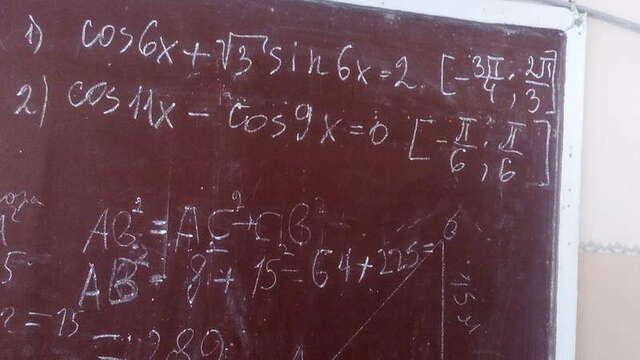 1) cos6x + √3 sin6x = 2. [-3π/4; 2π/3]
2) cos11x - cos9x = 0 [-π/6; π/6]
AB² = AC² + CB²
AB² = 8² + 15² = 64 + 225 =
= 15
= 289
15